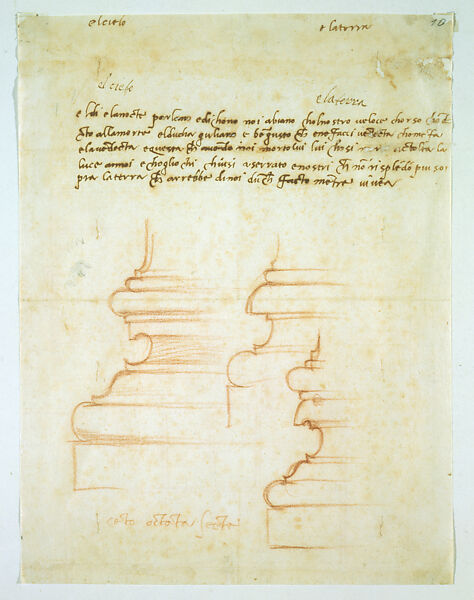 el cielo e la terra 10
el cielo e la terra
el di e la nocte parlano e dichono noi abiano chol nostro veloce chorso cho do
cto alla morte el ducha guliano e be gusto che e ne facci vendecta chome fa
e la vendecta e questa che avendo noi morto lui lui chosi morto a tolta la
luce a noi e chogli ochi chiusi a serrato e nostri che no risplẽdõ piu so
pra la terra che arrebbe di noi duche facto mẽtre vivea
ceto octota secte